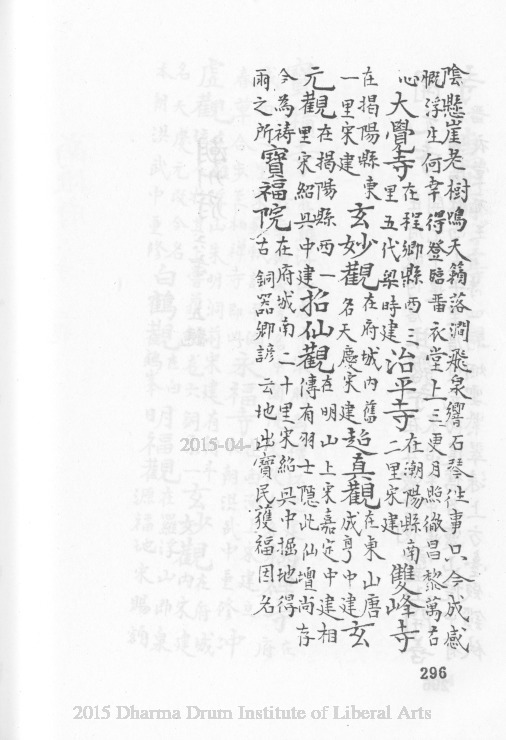 陰懸崖老樹鳴天籟落澗飛泉響石琴徃事只今成感
慨浮生何幸得登臨畨衣堂上三更月照徹昌黎萬古
心大覺寺在程鄉縣西三里五代梁時建治平寺在潮陽縣南二里宋建雙峰寺
在揭陽縣東一里宋建玄妙觀在府城内舊名天慶宋建超真觀在東山唐咸亨中建玄
元觀在揭陽縣西一里宋紹興中建招仙觀在明山上宋嘉定中建相傳有羽士隱此仙壇尚存
今為禱雨之所寶福院在府城南二十里宋紹興中掘地得古銅器鄉諺云地出寶民獲福因名
296
2015 Dharma Drum Institute of Liberal Arts